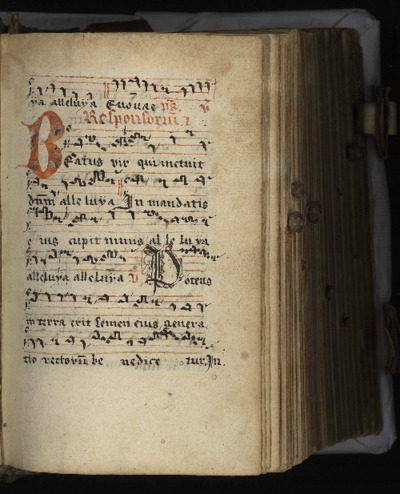 ya alleluya Euouae ps̄. V
Responsoriū
Beatus vir qui metuit
dnm̄ alleluya In mandatis
eius cupit nimis alleluya
alleluya alleluya V Potens
in terra erit semen eius genera
tio rectorū benedicetur. In.